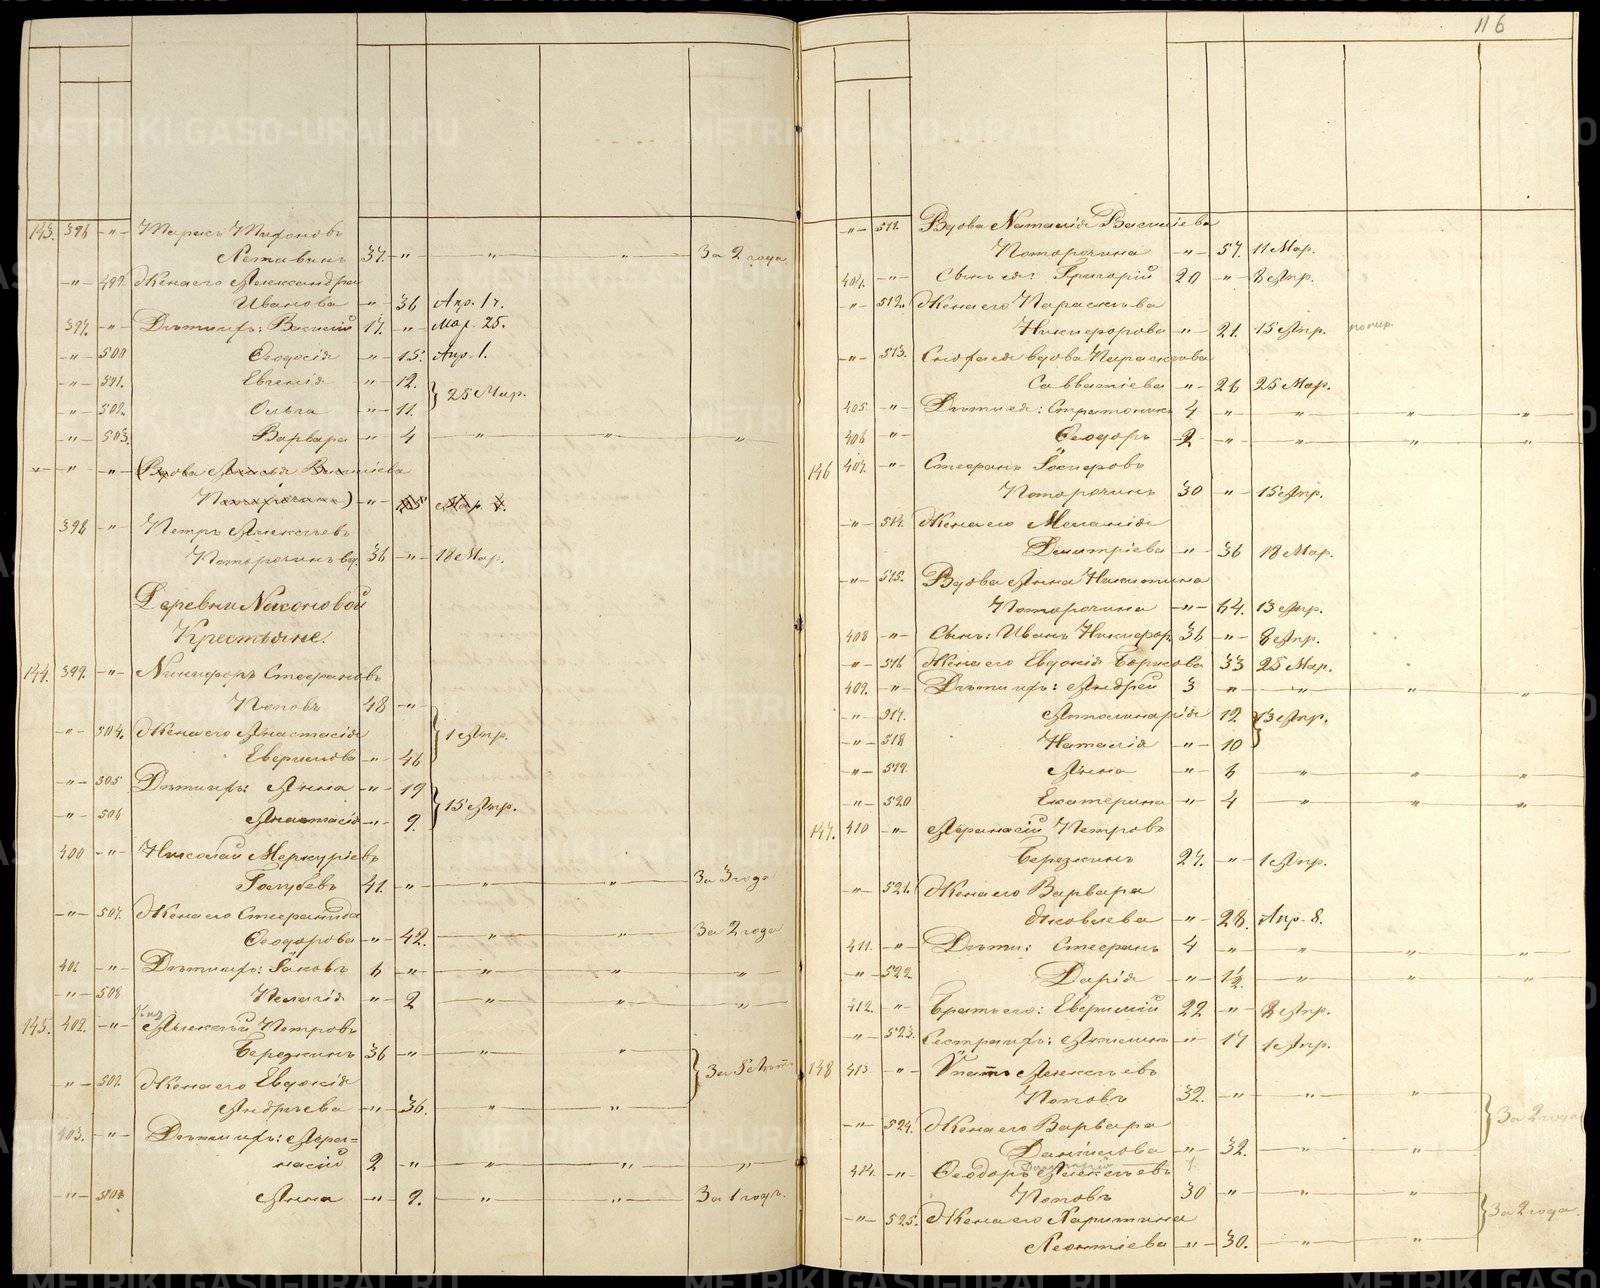 116
143. 396 -"- Тарасъ Тихоновъ
Летавинъ 37. -"- " " За 2 года
-"- 499. Жена его Александра
Иванова -"- 36 Апр. 1.
397. -"- Дѣти ихъ: Василій 17. -"- Мар. 25.
-"- 500 Ѳеодосія -"- 15. Апр. 1.
-"- 501. Евгенія -"- 12.
25 Мар.
-"- 502. Ольга -"- 11.
-"- 503. Варвара -"- 4 " " "
-"- -"- (Вдова Васильева
Поторочина) -"- Мар.
398 -"- Петръ Алексѣевъ
Поторочинъ вд. 36 -"- 18 Мар.
Деревни Никоновой
Крестьяне:
144. 399. -"- Никифоръ Стефановъ
Поповъ 48 -"-
1 Апр.
-"- 504. Жена его Анастасія
-"- 46
-"- 505 Дѣти ихъ: Анна -"- 19
15 Апр.
-"- 506 Анастасія -"- 9.
400 -"- Николай Меркуріевъ
Голубевъ 41. -"- " " За 3 года
-"- 507. Жена его Стефанида
Ѳеодорова -"- 42. " " За 2 года
401 -"- Дѣти ихъ: Іаковъ 6 -"- " " "
-"- 508 Пелагія -"- 2 " " "
145. 402. -"- Алексѣй Петровъ
Бережинъ 36 -"- " "
За 5 лѣтъ
-"- 509. Жена его Евдокія
Андреева -"- 36. " "
403. -"- Дѣти ихъ: Афа=
насій 2 -"- " " "
-"- Анна -"- 9. " " За 1 годъ.
-"- 511. Вдова Наталія Васильева
Поторочина -"- 57. 11 Мар.
404. -"- Сынъ ея: Григорій 20 -"- 8 Апр.
-"- 512. Жена его Параскева
Никифорова -"- 21. 15 Апр.
-"- 513. Сноха ея вдова Параскева
Савватіева -"- 26 25 Мар.
405. -"- Дѣти ея: Стратоникъ 4 -"- " " "
406 -"- Ѳеодоръ 2 -"- " " "
146 407. -"- Стефанъ
Поторочинъ 30 -"- 15 Апр.
-"- 514. Жена его Меланія
Димитріева -"- 36 18 Мар.
-"- 515. Вдова Анна Никитина
Поторочина -"- 64. 13 Апр.
408 -"- Сынъ: Иванъ Никифор. 36 -"- 8 Апр.
-"- 516 Жена его Евдокія Борисова 33 25 Мар.
409. -"- Дѣти ихъ: Андрей 3 " " " "
-"- 517. Аполинарія 12
13 Апр.
-"- 518 Наталія -"- 10
-"- 519. Анна -"- 6 " " "
-"- 520 Екатерина -"- 4 " " "
147. 410 -"- Афанасій Петровъ
Бережинъ 27. -"- 1 Апр.
-"- 521. Жена его Варвара
Яковлева -"- 28. Апр. 8.
411. -"- Дѣти: Стефанъ 4 -"- " " "
-"- 522 Дарія -"- 1½. " " "
412. -"- Братъ его: Евфимій 22 -"- 8 Апр.
-"- 523. Сестра ихъ: -"- 17 1 Апр.
148 413. -"- Ѵпатъ Алексѣевъ
Поповъ 32. -"- " "
За 2 года
-"- 524. Жена его Варвара
Данилова -"- 32. " "
414. -"- Ѳеодоръ Алексѣевъ
Поповъ 30 -"- " "
За 2 года.
-"- 525. Жена его Харитина
Леонтіева -"- 30. " "